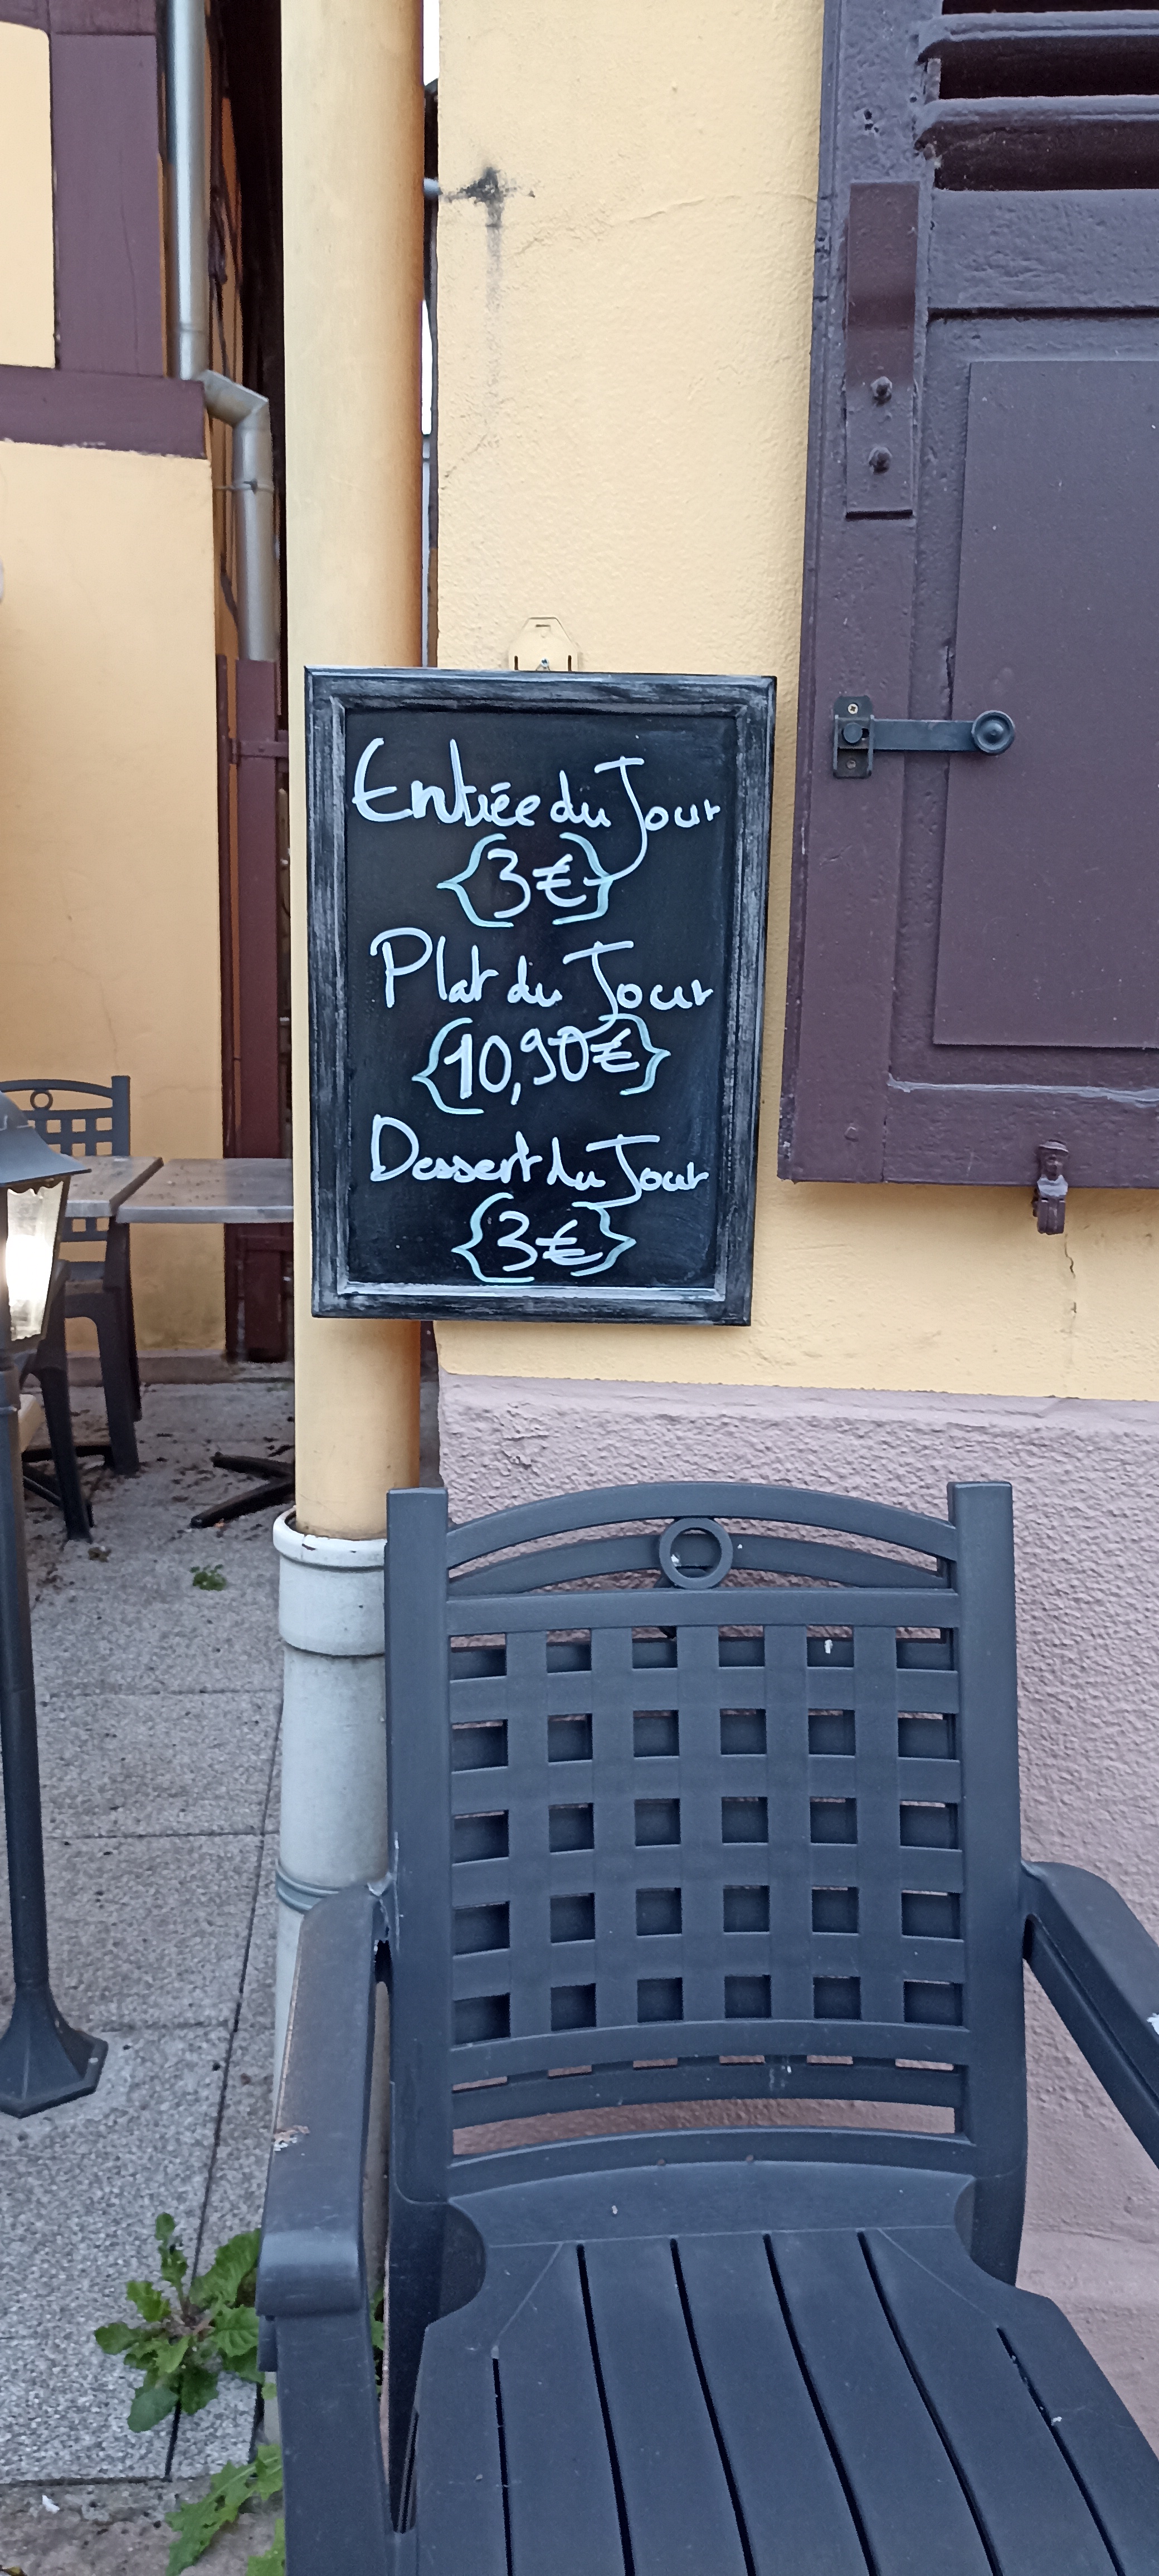 Entrée du Jour
{3€}
Plat du Jour
{10,90€}
Dessert du Jour
{3€}